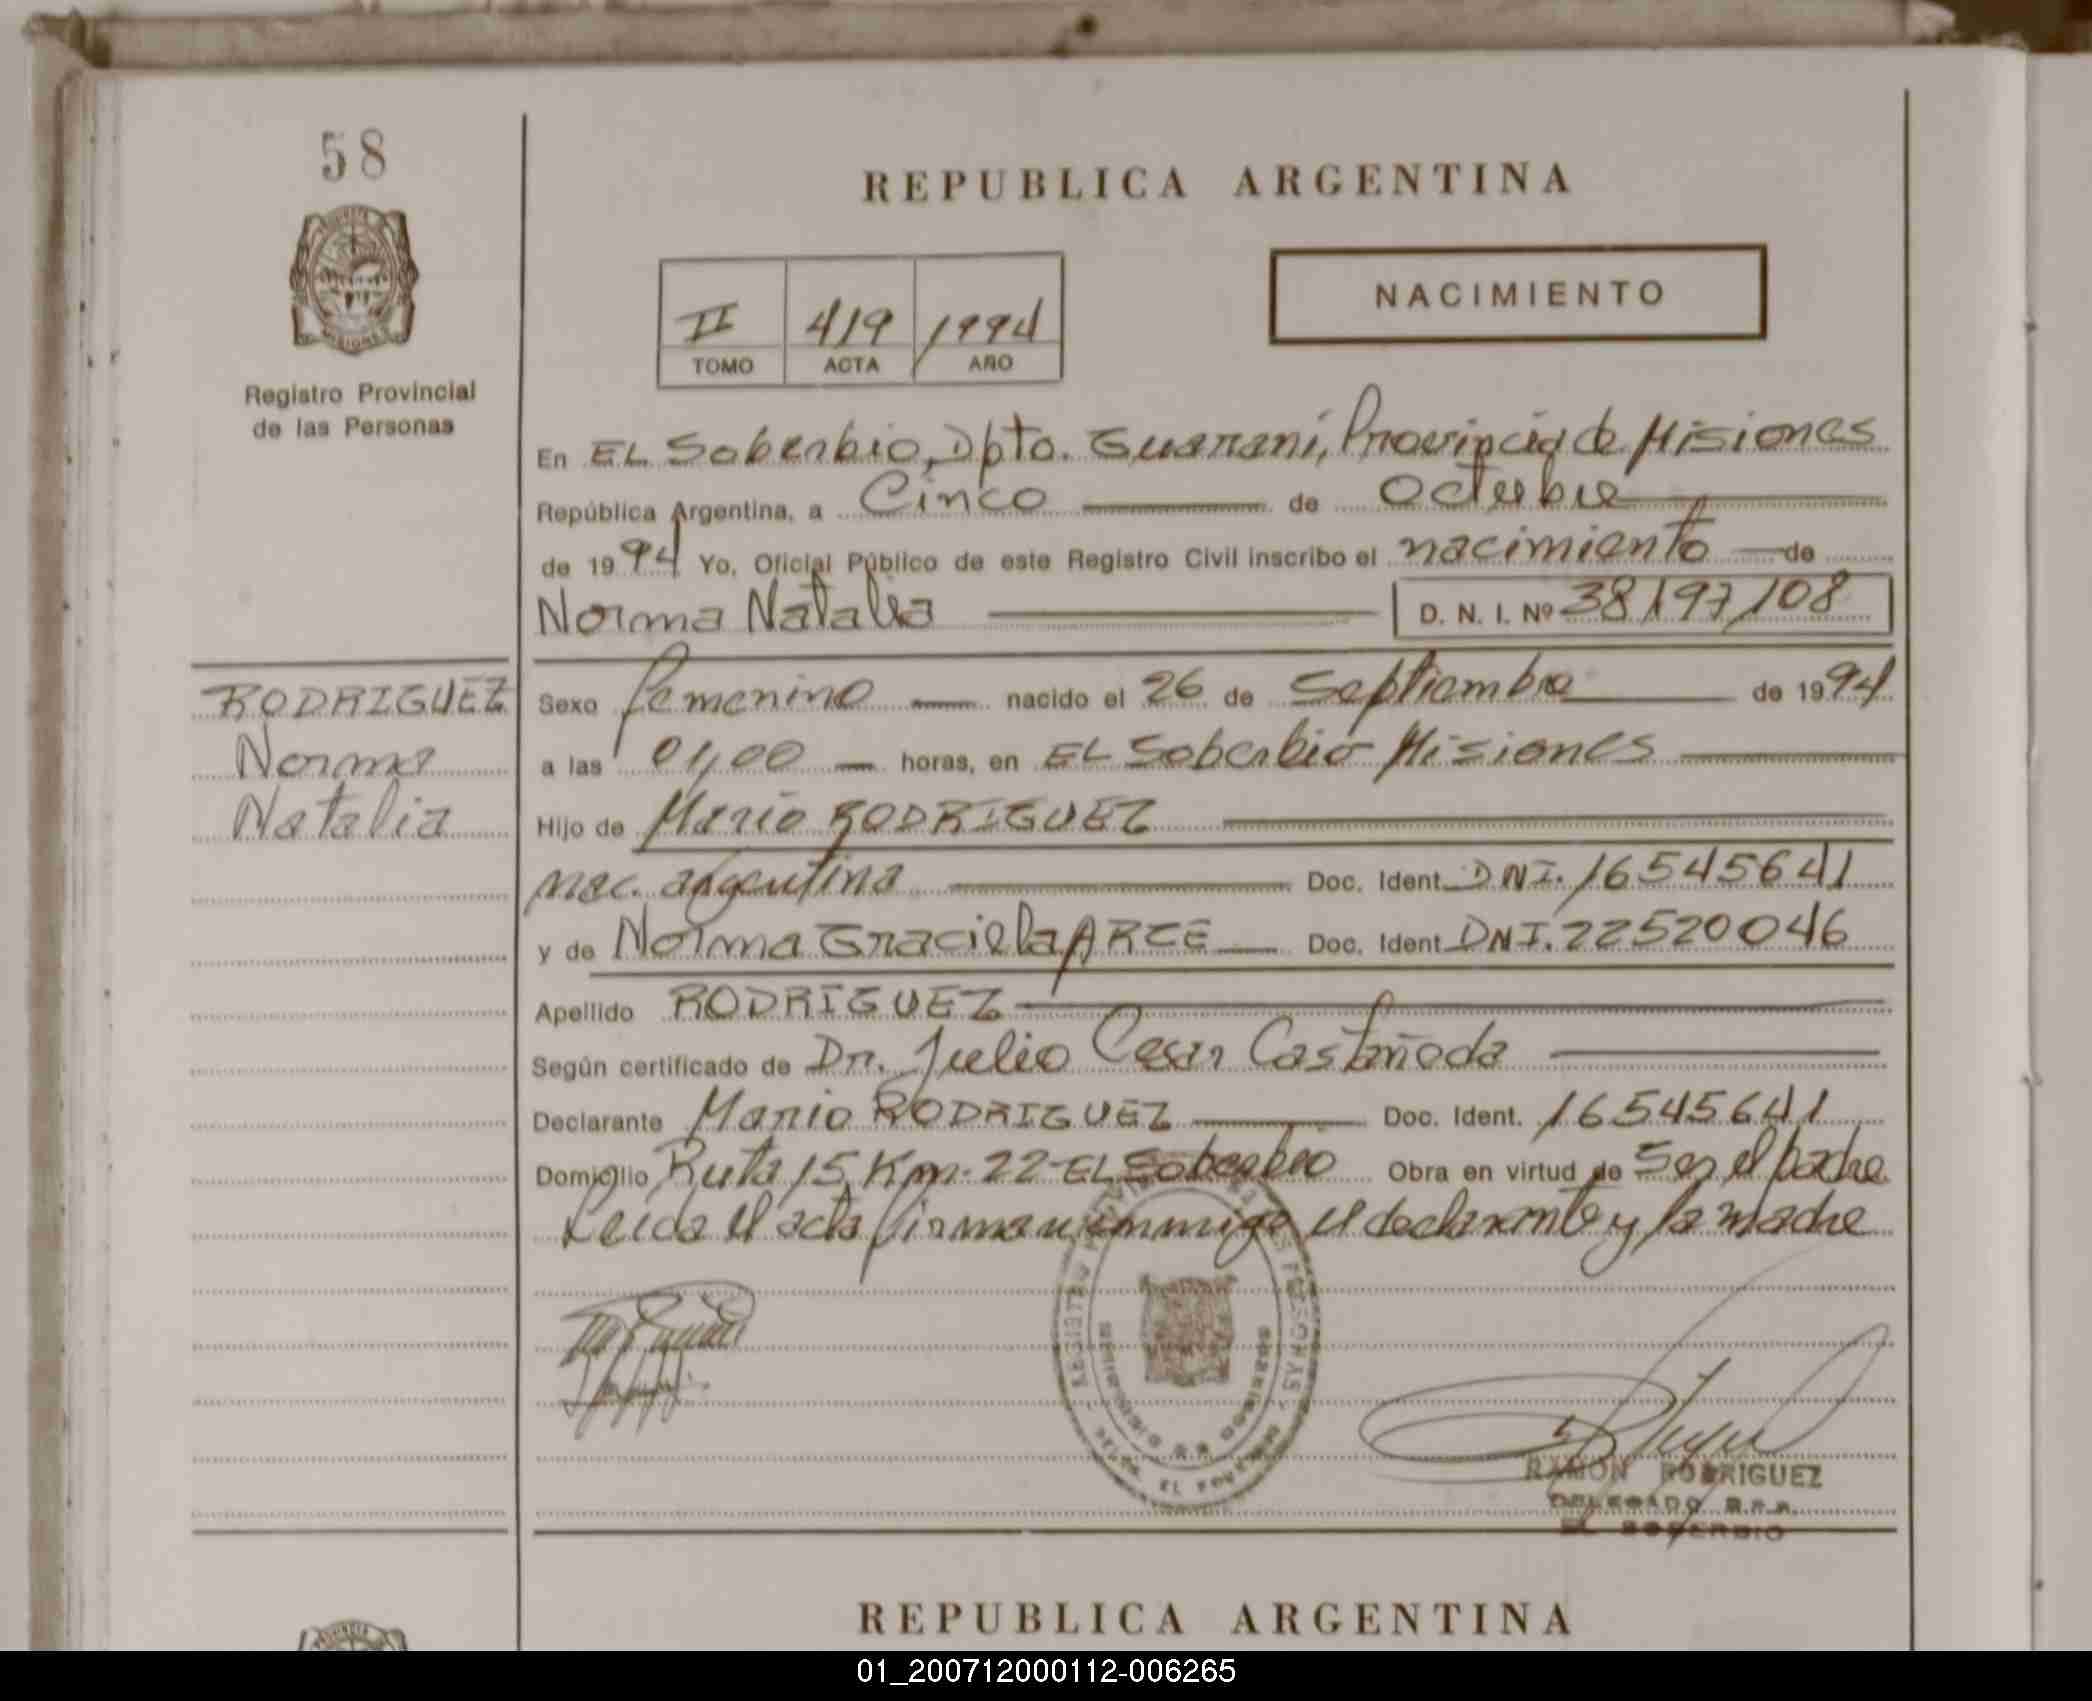 58
REPUBLICA ARGENTINA
NACIMIENTO
II 419 1994
TOMO ACTA AÑO
Registro Provincial
de las Personas
En EL Soberbio, Dpto. Guarani, Provincia de Misiones
República Argentina, a Cinco de Octubre
de 1994 Yo, Oficial Público de este Registro Civil inscribo el nacimiento de
Norma Natalia D. N. I. Nº 38/197/108
RODRIGUEZ
Norma
Natalia
Sexo femenino nacido el 26 de Septiembre de 1994
a las 01,00 horas, en EL Soberbio Misiones
Hijo de Mario RODRIGUEZ
nac. argentina Doc. Ident. DNI. 16545641
y de Norma Graciela ARCE Doc. Ident. DNI. 22520046
Apellido RODRIGUEZ
Según certificado de Dr. Julio Cesar Castañeda
Declarante Mario RODRIGUEZ Doc. Ident. 16545641
Domicilio Ruta 15 Km. 22 EL Soberbio Obra en virtud de Ser el padre
Leida el acta firman conmigo el declarante y la madre
REGISTRO PROVINCIAL DE LAS PERSONAS
EL SOBERBIO
RAMON RODRIGUEZ
DELEGADO R.P.P.
EL SOBERBIO
REPUBLICA ARGENTINA
01_200712000112-006265